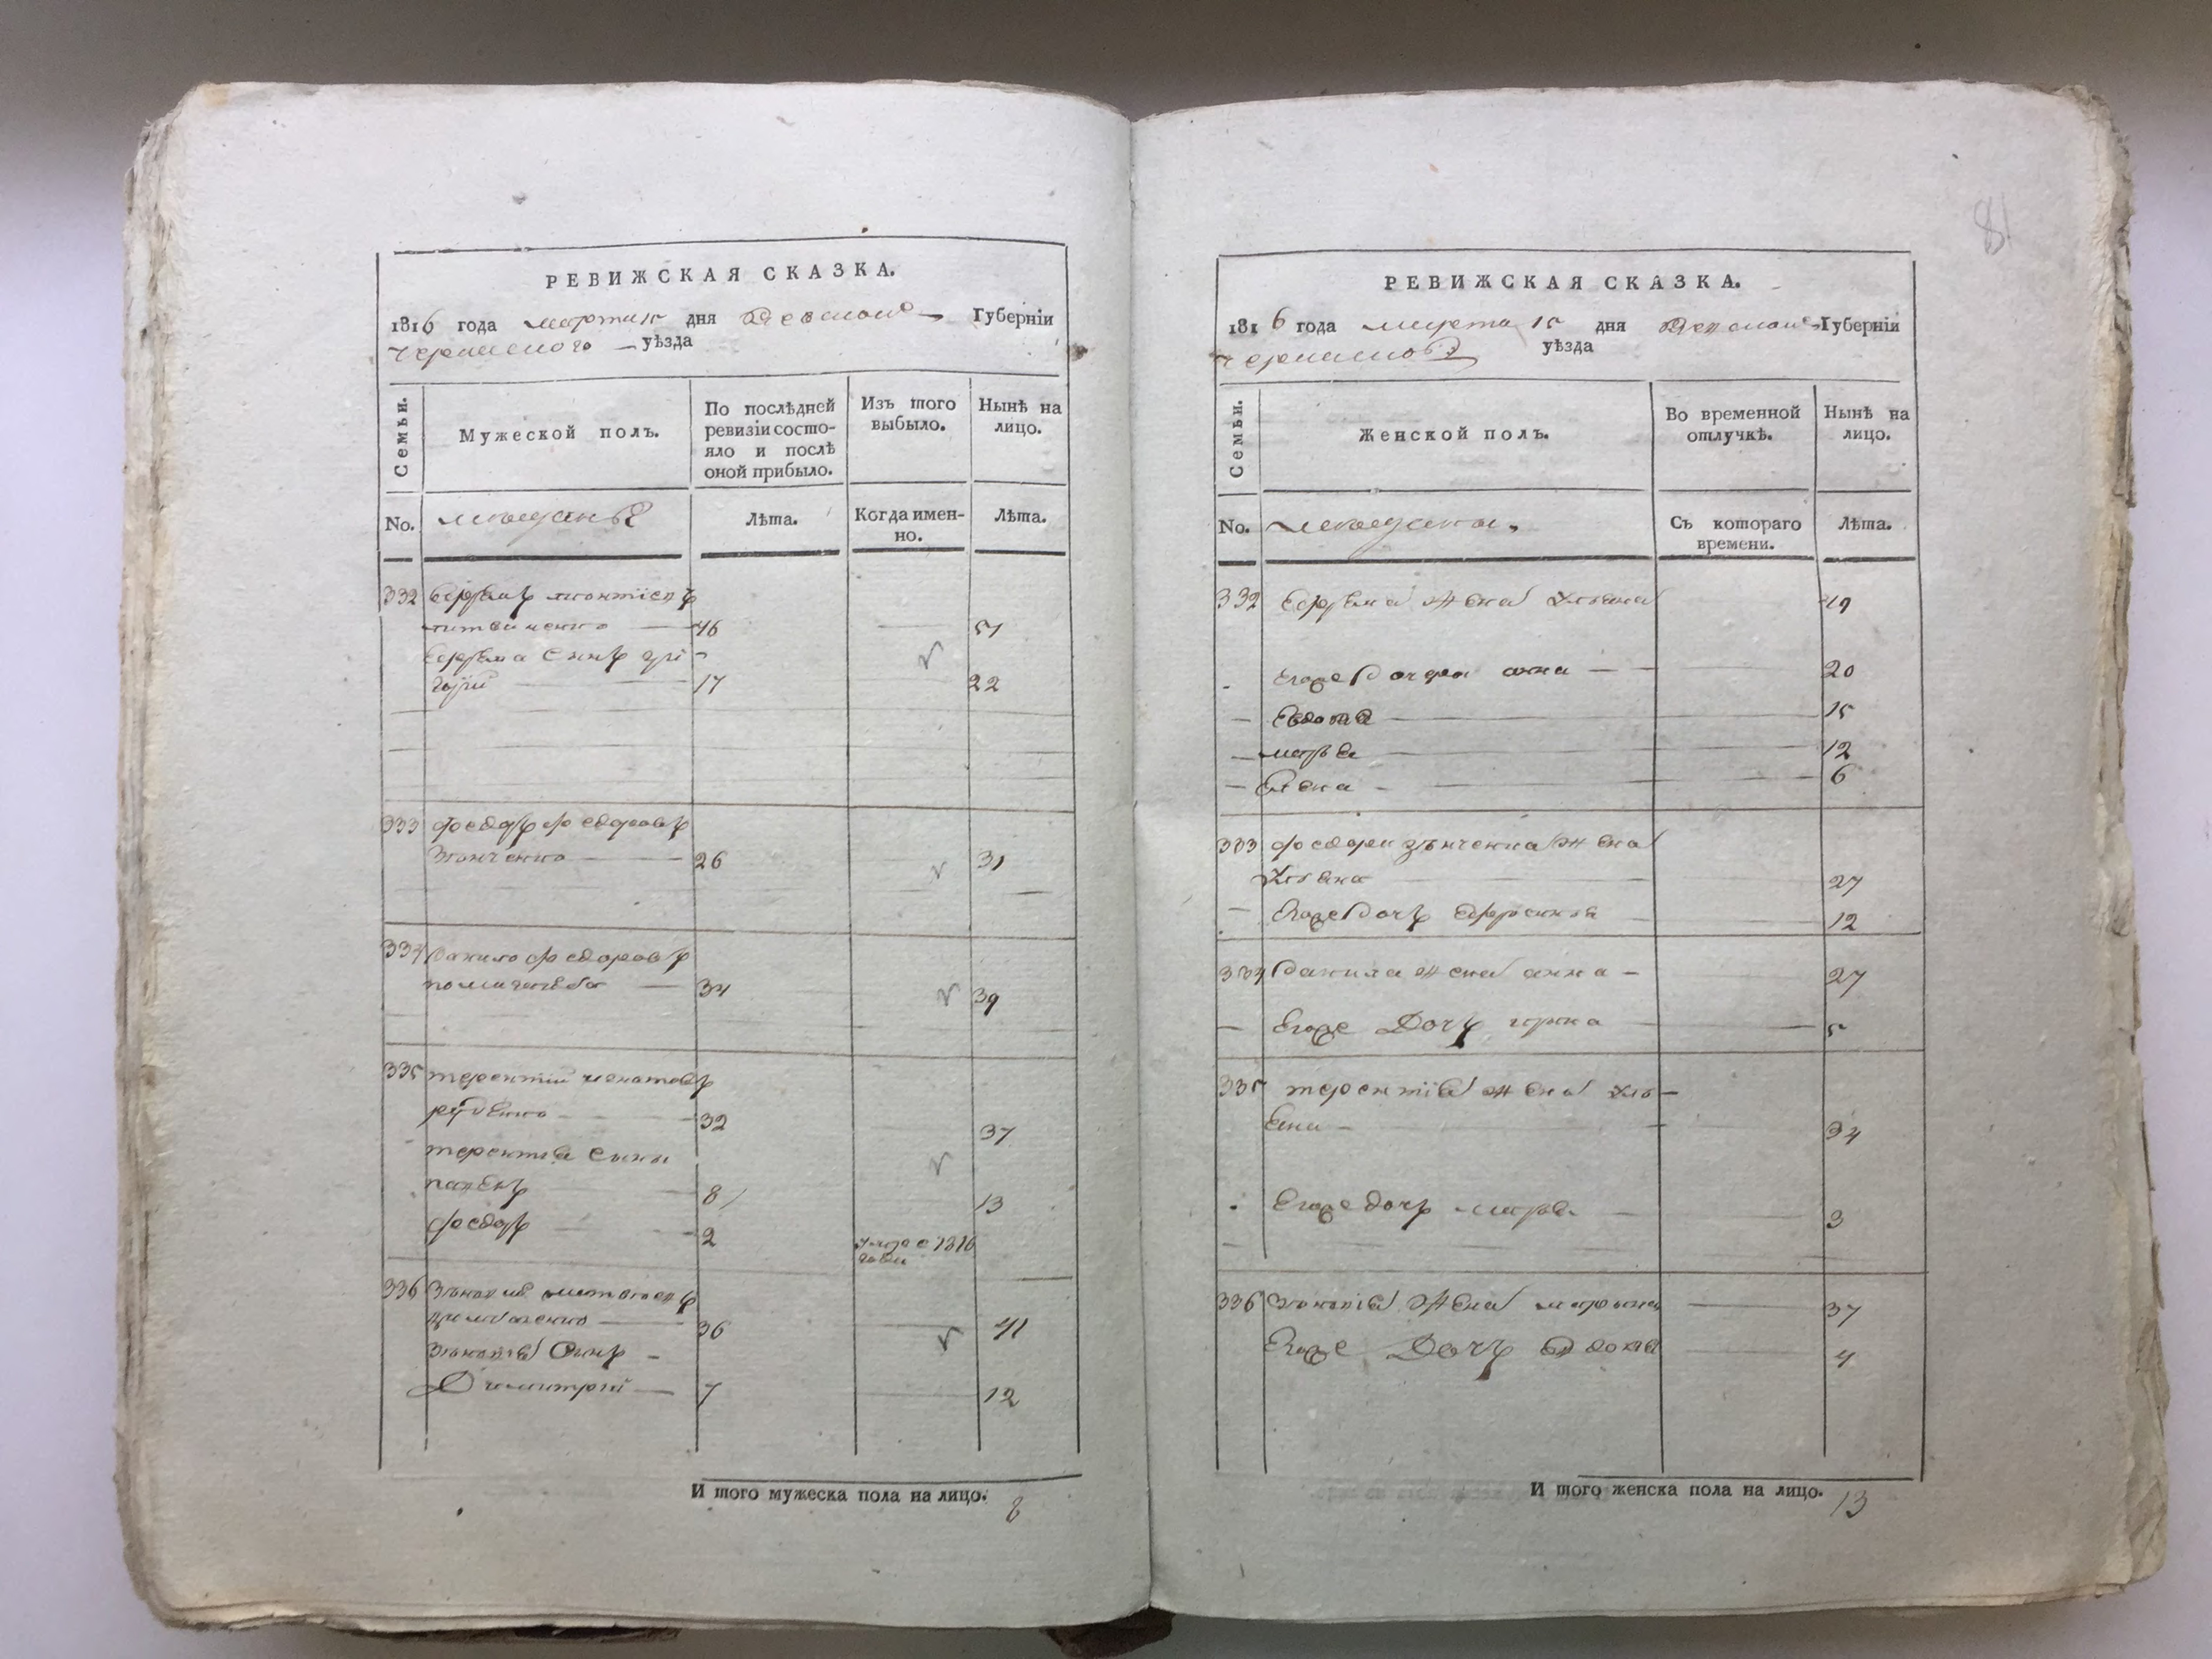 РЕВИЖСКАЯ СКАЗКА.
1816 года марта 15 дня Киевской Губернїи
Черкаского уѣзда
Семьи.
Мужеской полъ.
По послѣдней ревизїи состо-
яло и послѣ
оной прибыло.
Изъ того
выбыло.
Нынѣ на
лицо.
No.
мещане
Лѣта.
Когда имен-
но.
Лѣта.
332
литвиненко 46 51
сынъ гри-
горїй 17 22
333 федоръ федоровъ
26 31
334 Данило федоровъ
34 39
335 терентїй игнатовъ
руденко 32 37
терентїя сыны
павелъ 8 13
федоръ 2 умре в 1816
годе
336
36 41
сынъ
Димитрїй 7 12
И того мужеска пола на лицо. 8
81
РЕВИЖСКАЯ СКАЗКА.
1816 года марта 15 дня Киевской Губернїи
Черкаского уѣзда
Семьи.
Женской полъ.
Во временной
отлучкѣ.
Нынѣ на
лицо.
No.
мещанки.
Съ котораго
времени.
Лѣта.
332 жена Ульяна 49
Егоже дочери анна 20
Евдокия 15
марья 12
Елена 6
333 федора зѣнченка жена
Ульяна 27
Егоже дочъ Ефросиния 12
334 Данила жена анна 27
Егоже Дочъ 5
335 терентїя жена Уль-
яна 34
Егоже дочъ марья 3
336 жена марьяна 37
Егоже Дочъ Евдокия 4
И того женска пола на лицо. 13